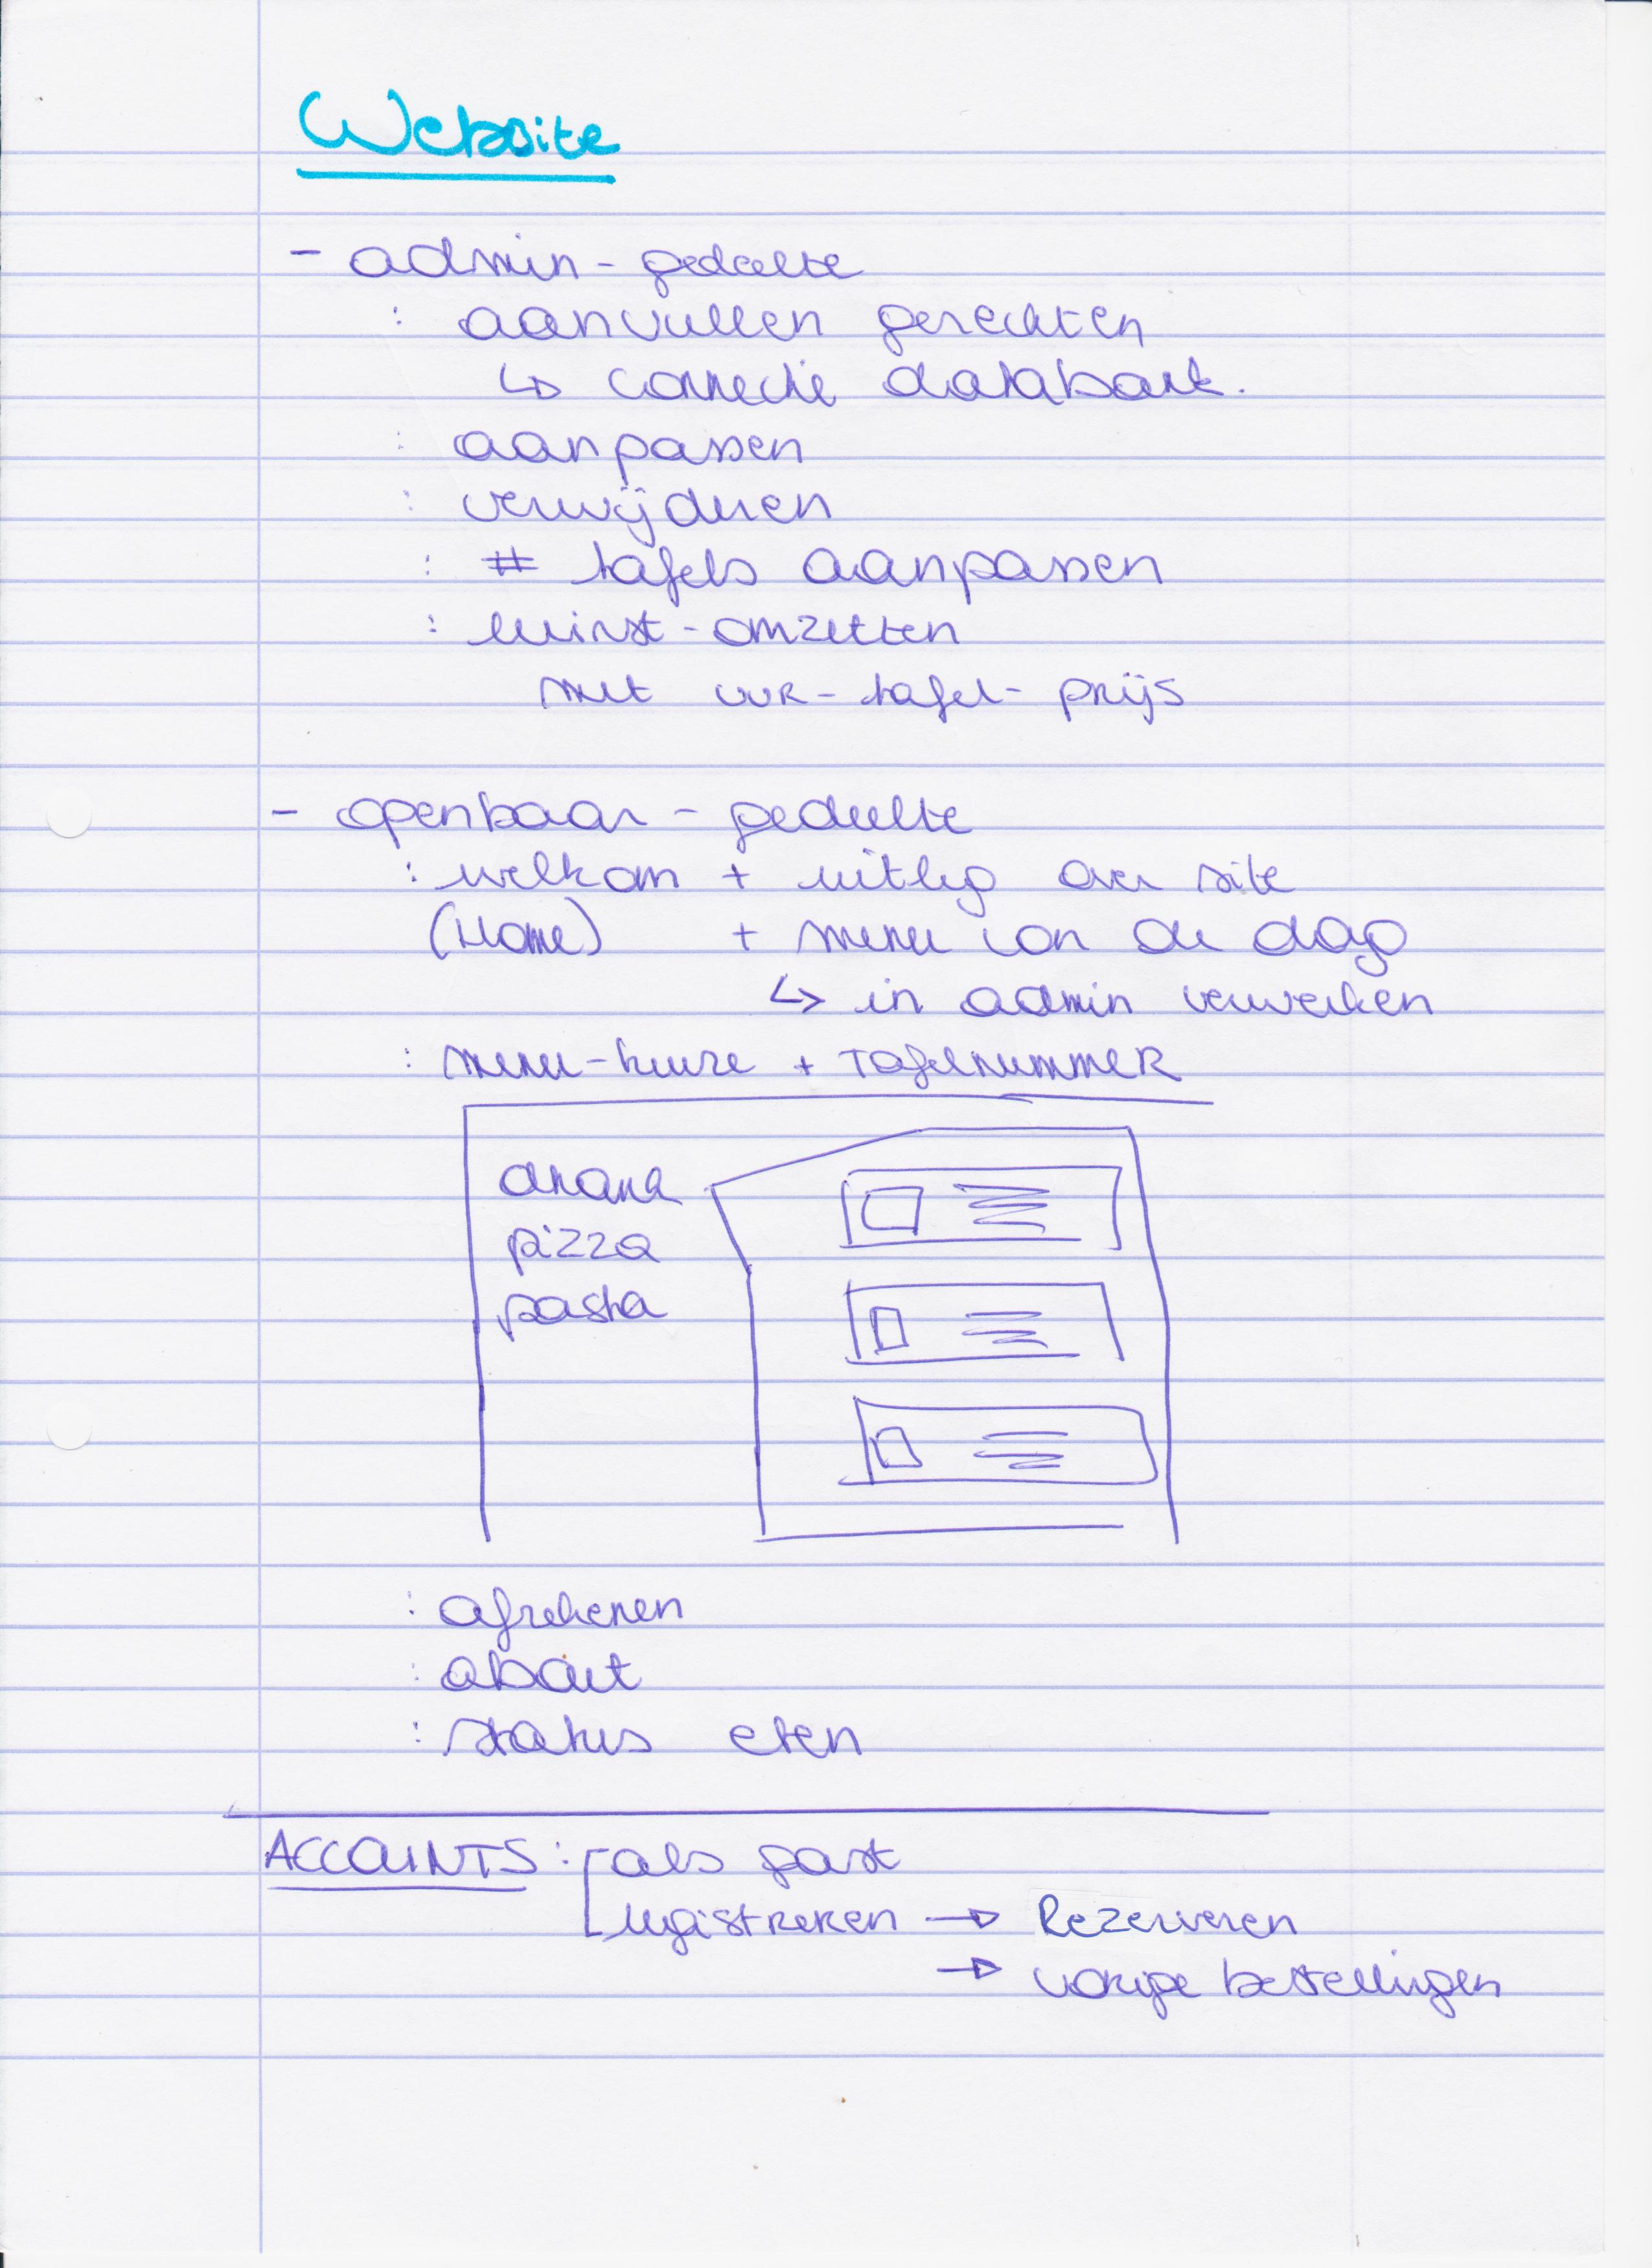 Website
- admin - gedeelte
: aanvullen gerechten
↳ connectie databank.
: aanpassen
: verwijderen
: # tafels aanpassen
: winst - omzetten
met uur - tafel - prijs
- openbaar - gedeelte
: welkom + uitleg over site
(Home) + menu van de dag
↳ in admin verwerken
: menu-keuze + Tafelnummer
drank
pizza
pasta
: afrekenen
: about
: status eten
ACCOUNTS : als gast
registreren → Rezerveren
→ vorige bestellingen